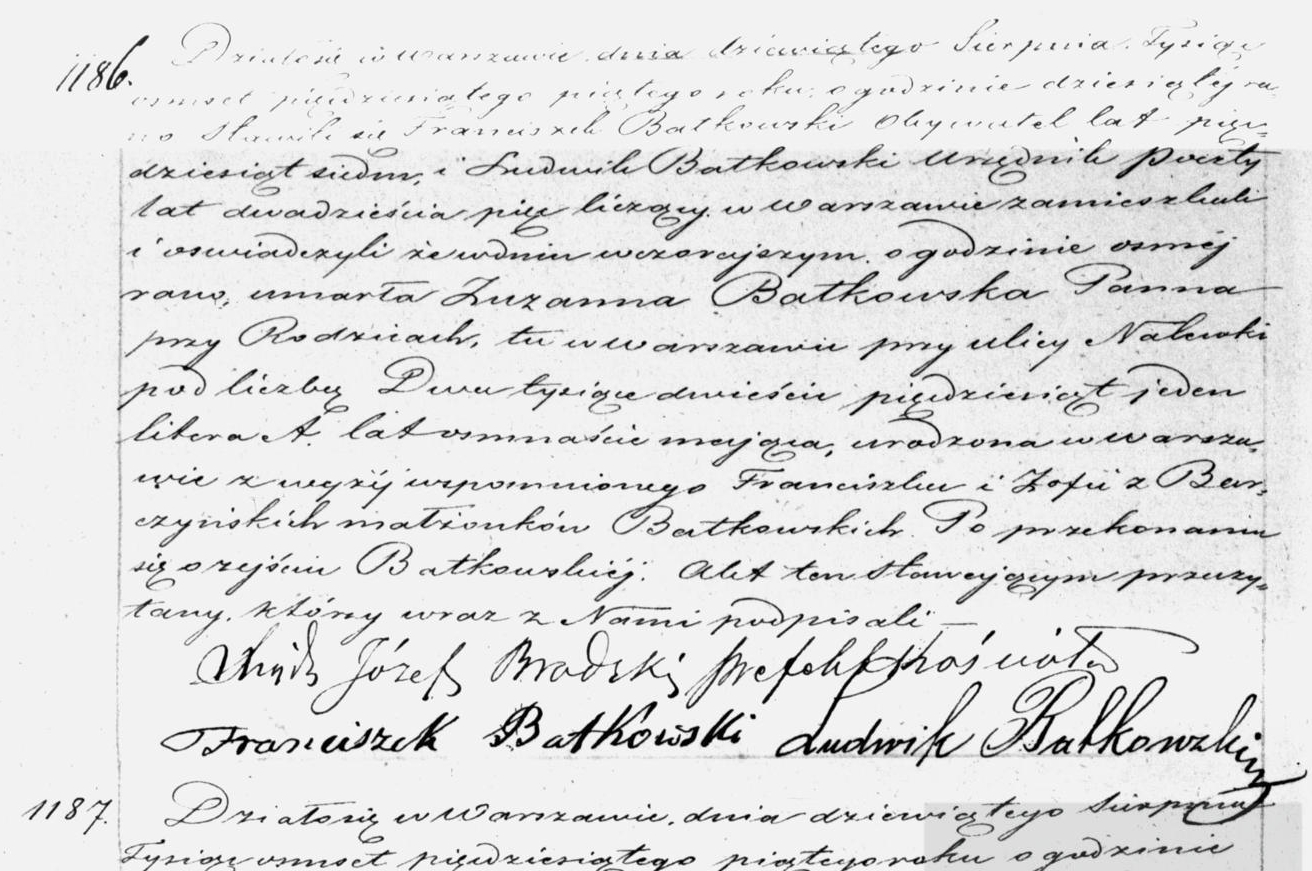 1186. Działo się w Warszawie dnia dziewiątego Sierpnia Tysiąc
osmset pięćdziesiątego piątego roku, o godzinie dziesiątej ra,
no Stawili się Franciszek Batkowski Obywatel lat pięć=
dziesiąt siedm, i Ludwik Batkowski Urzędnik poczty
lat dwadzieścia pięć liczący, w Warszawie zamieszkali
i oswiadczyli że w dniu wczorajszym, o godzinie osmej
rano, umarła Zuzanna Batkowska Panna
przy Rodzicach, tu w Warszawie przy ulicy Nalewki
pod liczbą Dwa tysiące dwieście pięćdziesiąt jeden
litera A. lat osmnaście mająca, urodzona w Warsza,
wie z wyżej wspomnionego Franciszka i Zofii z Bar=
czyńskich małżonków Batkowskich. Po przekonaniu
się o zejściu Batkowskiej. Akt ten Stawającym przeczy=
tany, który wraz z Nami podpisali —
Józef Brodzki prefekt Kościoła
Franciszek Batkowski Ludwik Batkowski
1187. Działo się w Warszawie, dnia dziewiątego Sierpnia
Tysiąc osmset pięćdziesiątego piątego roku o godzinie